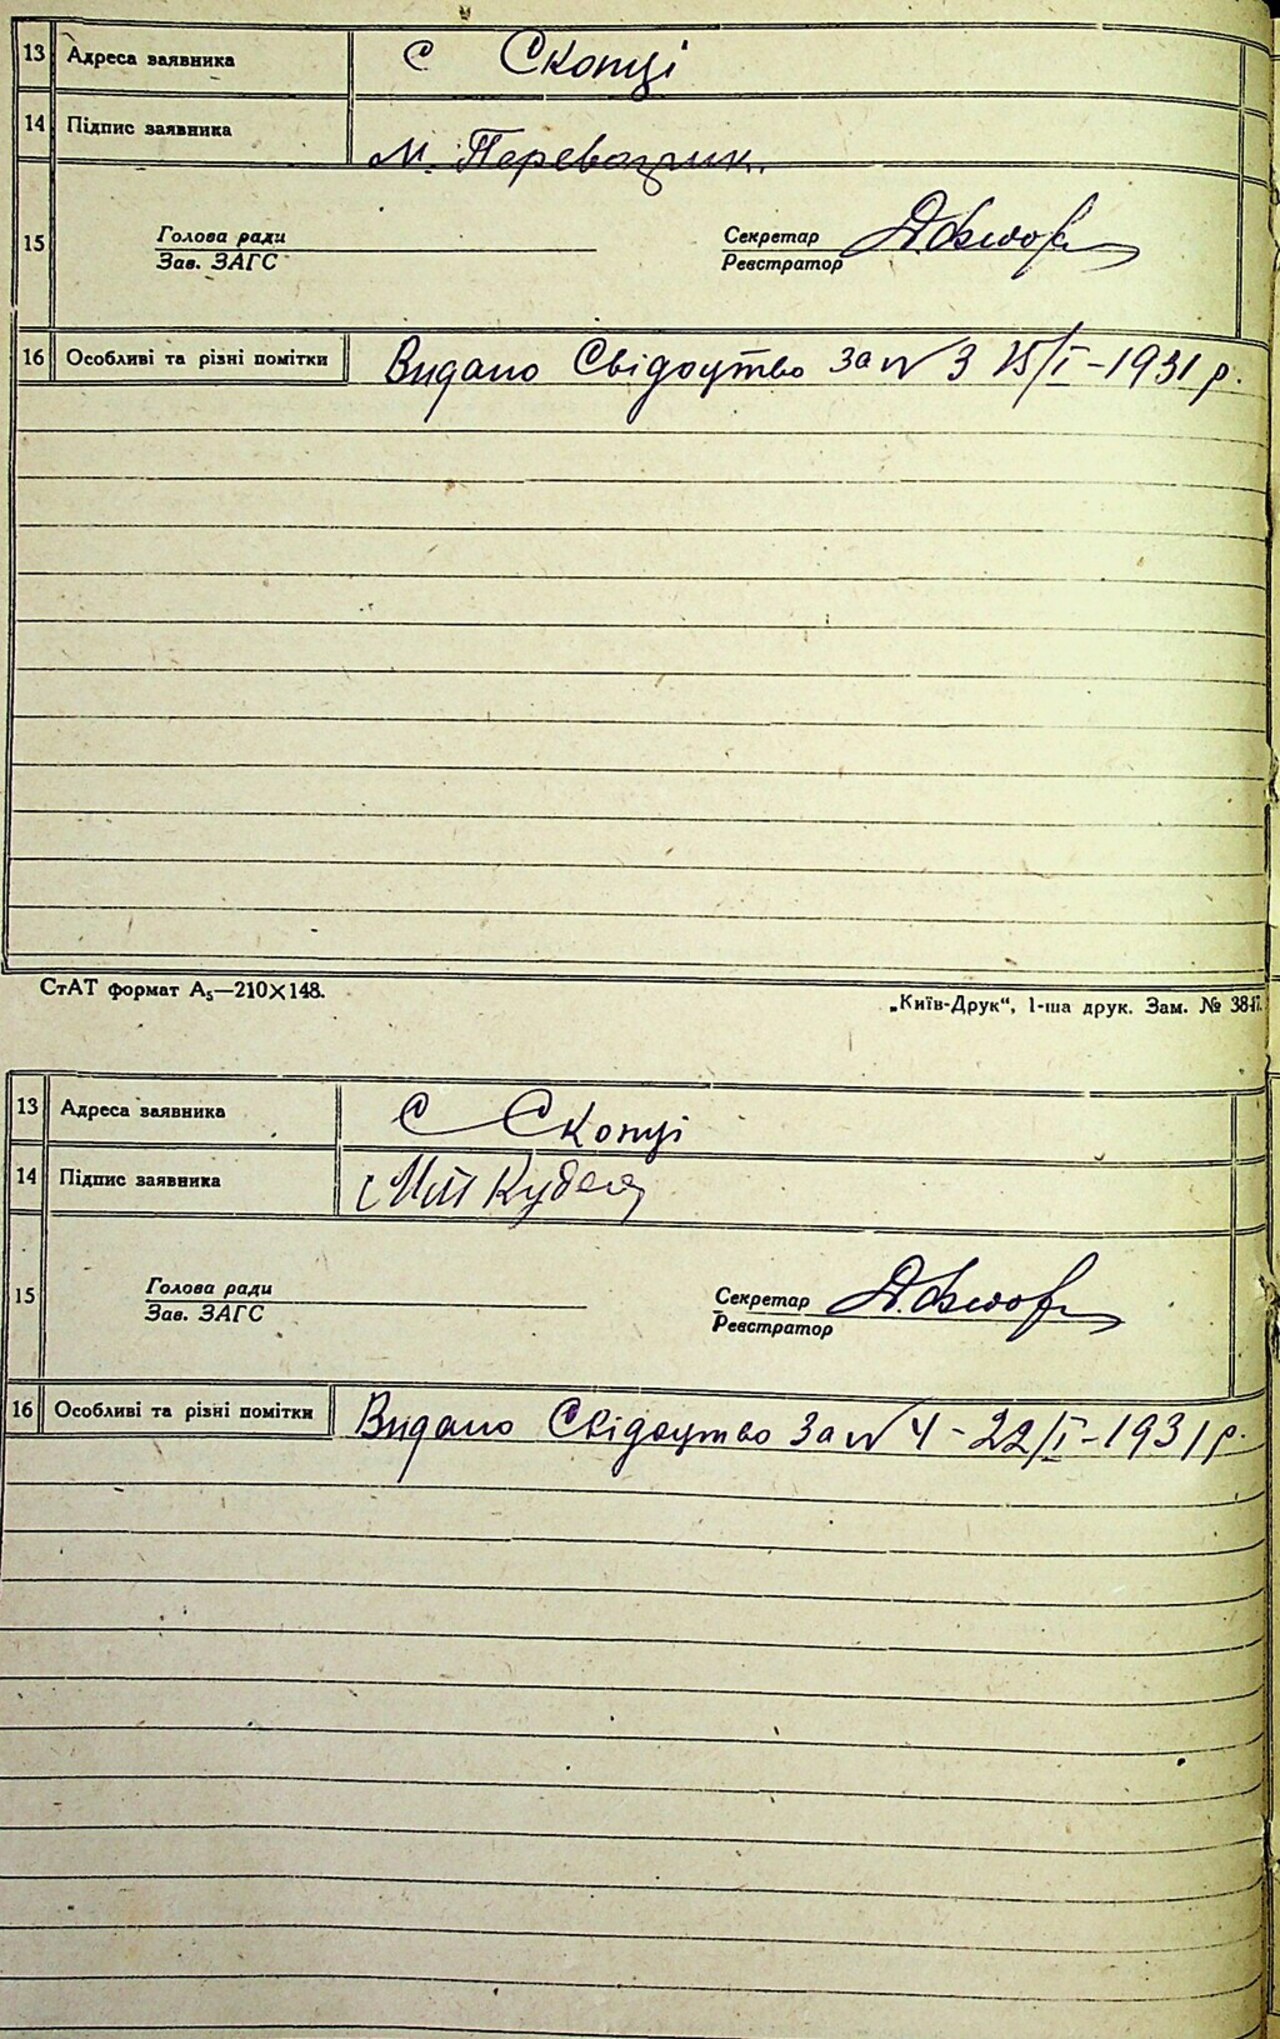 13 Адреса заявника с Скопці
14 Підпис заявника М. Перевозник.
15 Голова ради Секретар
Зав. ЗАГС Реєстратор
16 Особливі та різні помітки Видано Свідоцтво за N 3 15/I-1931 р.
СтАТ формат А₅—210×148. „Київ-Друк“, 1-ша друк. Зам. № 3847.
13 Адреса заявника с Скопці
14 Підпис заявника
15 Голова ради Секретар
Зав. ЗАГС Реєстратор
16 Особливі та різні помітки Видано Свідоцтво за N 4 - 22/I-1931 р.